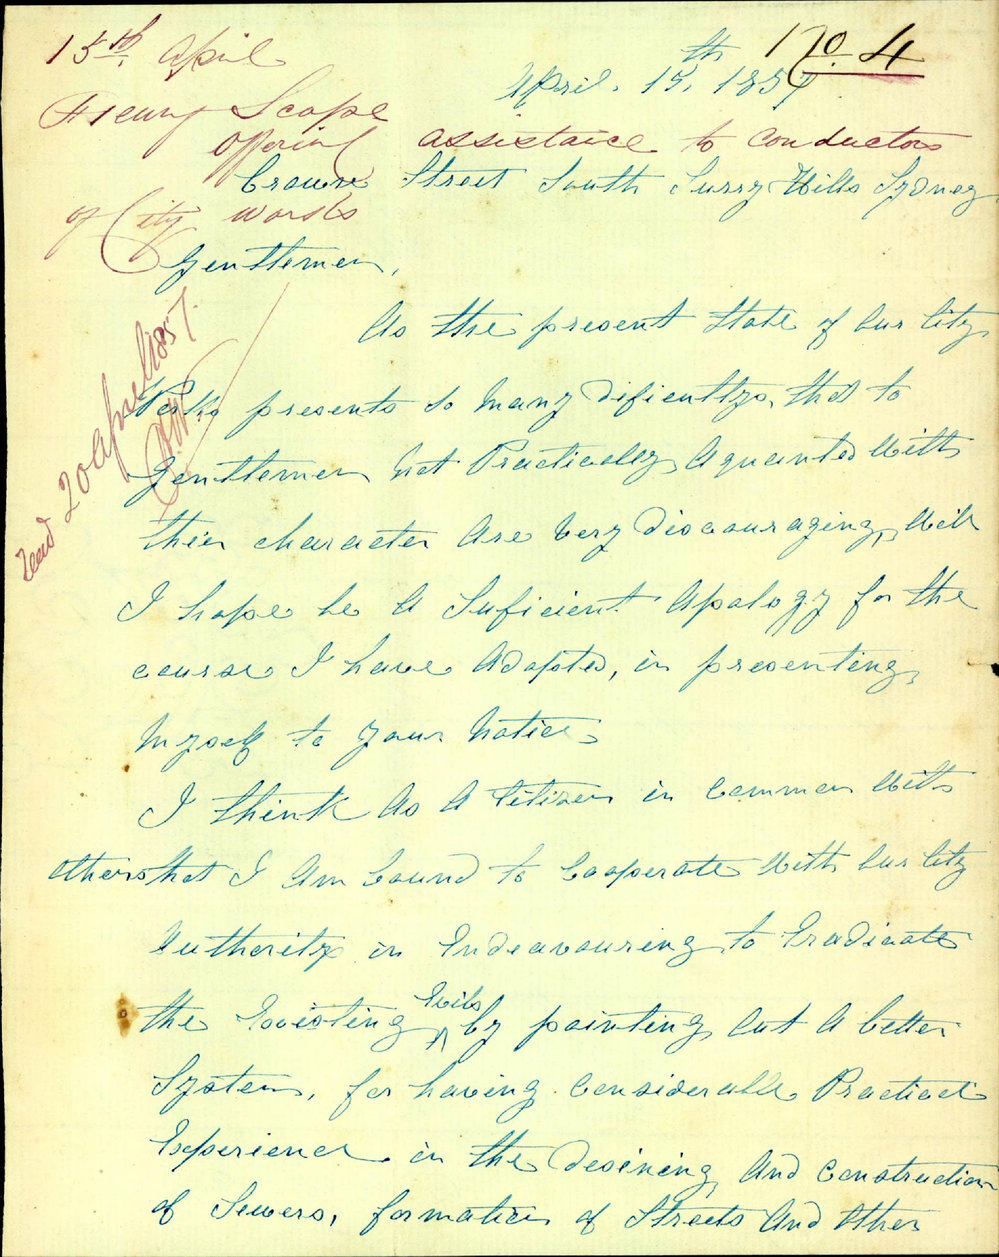 15th April
No. 4
April. 15th, 1857
Henry Scope
offering assistance to conductors
of City works
Crown Street South Surry Hills Sydney
Gentlemen,
read 20 April 1857.
As the present State of Our City
Works presents so Many Dificulltys, that to
Gentlemen Not Practically Aquanted With
their character Are Very Discouraging, Will
I hope be A Suficient Apology for the
course I have Adopted, in presenting
Myself to Your Notice
I think As A Citizen in Common With
others that I Am bound to Cooperate With Our City
Authority in Endeavouring to Eradicate
the Existing Evils by pointing Out A better
System, for having Considerable Practical
Experience in the Desining And Construction
of Sewers, formation of Streets And Other